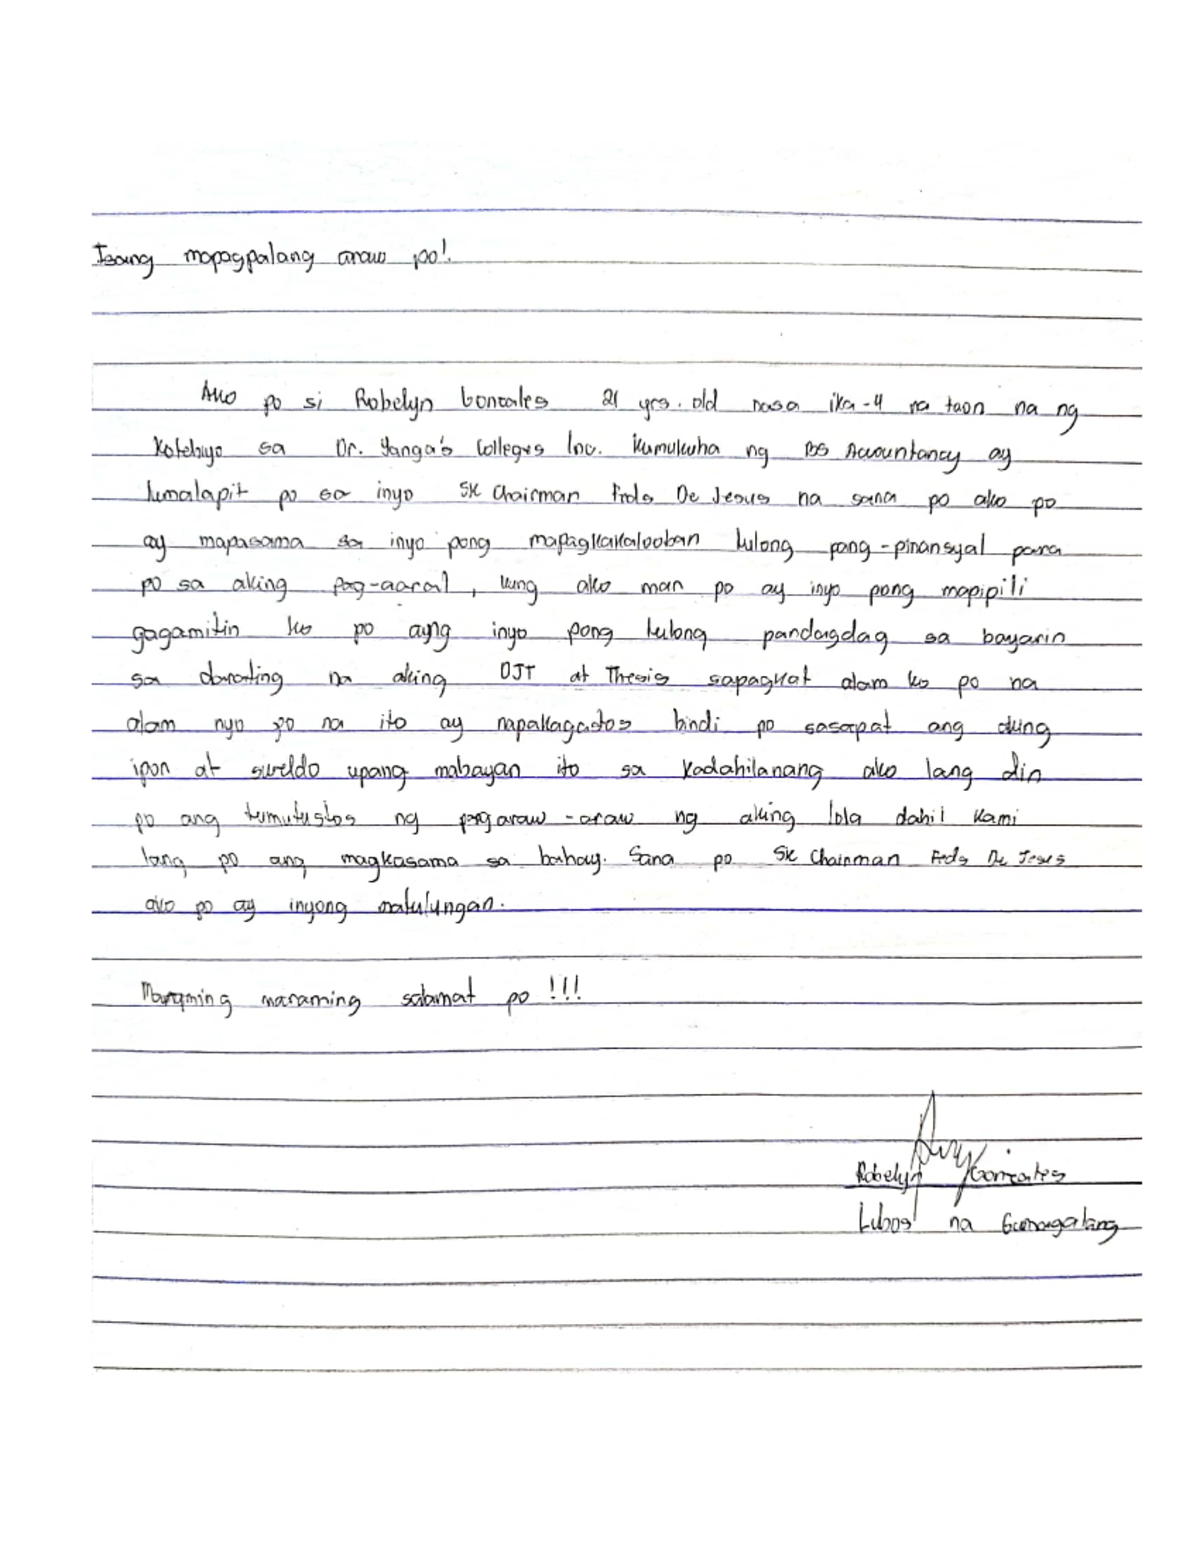 Isang mapagpalang araw po!
Ako po si Robelyn Gonzales 21 yrs. old nasa ika-4 na taon na ng
Kolehiyo sa Dr. Yanga's Colleges Inc. Kumukuha ng BS Accountancy ay
lumalapit po sa inyo SK Chairman Ferds De Jesus na sana po ako po
ay mapasama sa inyo pong mapagkakalooban tulong pang-pinansyal para
po sa aking pag-aaral, kung ako man po ay inyo pong mapipili
gagamitin ko po ayng inyo pong tulong pandagdag sa bayarin
sa darating na aking OJT at Thesis sapagkat alam ko po na
alam nyo po na ito ay napakagastos hindi po sasapat ang aking
ipon at sweldo upang mabayan ito sa kadahilanang ako lang din
po ang tumutustos ng pangaraw-araw ng aking lola dahil kami
lang po ang magkasama sa bahay. Sana po SK Chairman Ferds De Jesus
ako po ay inyong matulungan.
Maraming maraming salamat po !!!
Robelyn Gonzales
Lubos na Gumagalang